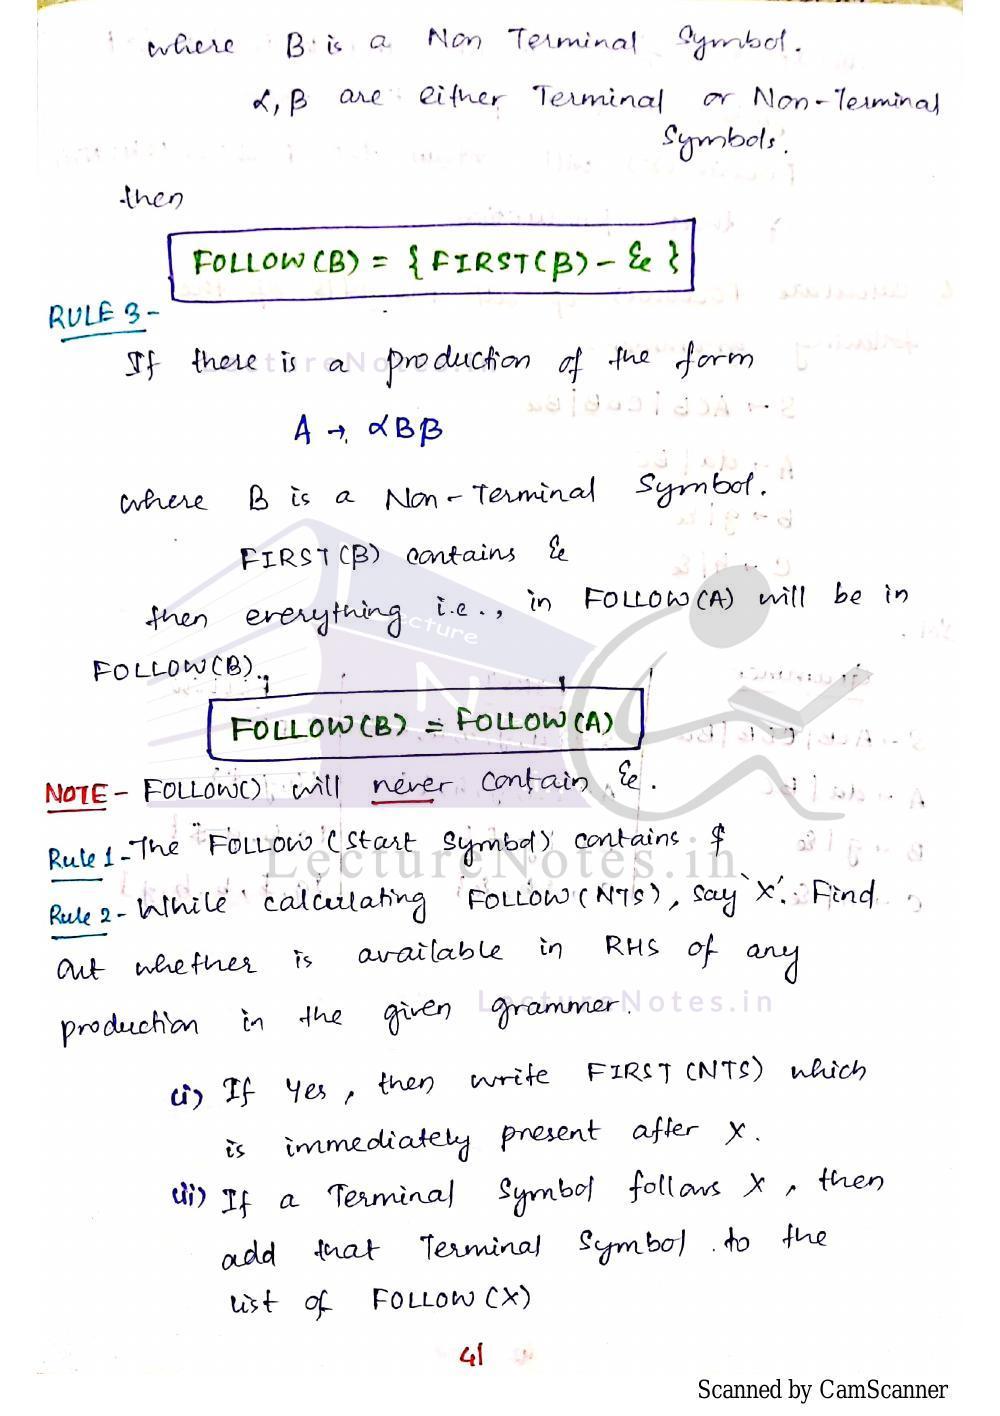 where B is a Non Terminal Symbol.
α, β are either Terminal or Non-Terminal
Symbols.
then
FOLLOW(B) = {FIRST(β) - ε}
RULE 3 -
If there is a production of the form
A → αBβ
where B is a Non-Terminal Symbol.
FIRST(β) contains ε
then everything i.e., in FOLLOW(A) will be in
FOLLOW(B).
FOLLOW(B) = FOLLOW(A)
NOTE - FOLLOW() will never contain ε.
Rule 1 - The "FOLLOW (Start Symbol) contains $
LectureNotes.in
Rule 2 - While calculating FOLLOW(NTS), say 'X'. Find
out whether is available in RHS of any
LectureNotes.in
production in the given grammer.
(i) If Yes, then write FIRST (NTS) which
is immediately present after X.
(ii) If a Terminal Symbol follows X, then
add that Terminal Symbol to the
list of FOLLOW(X)
41
Scanned by CamScanner